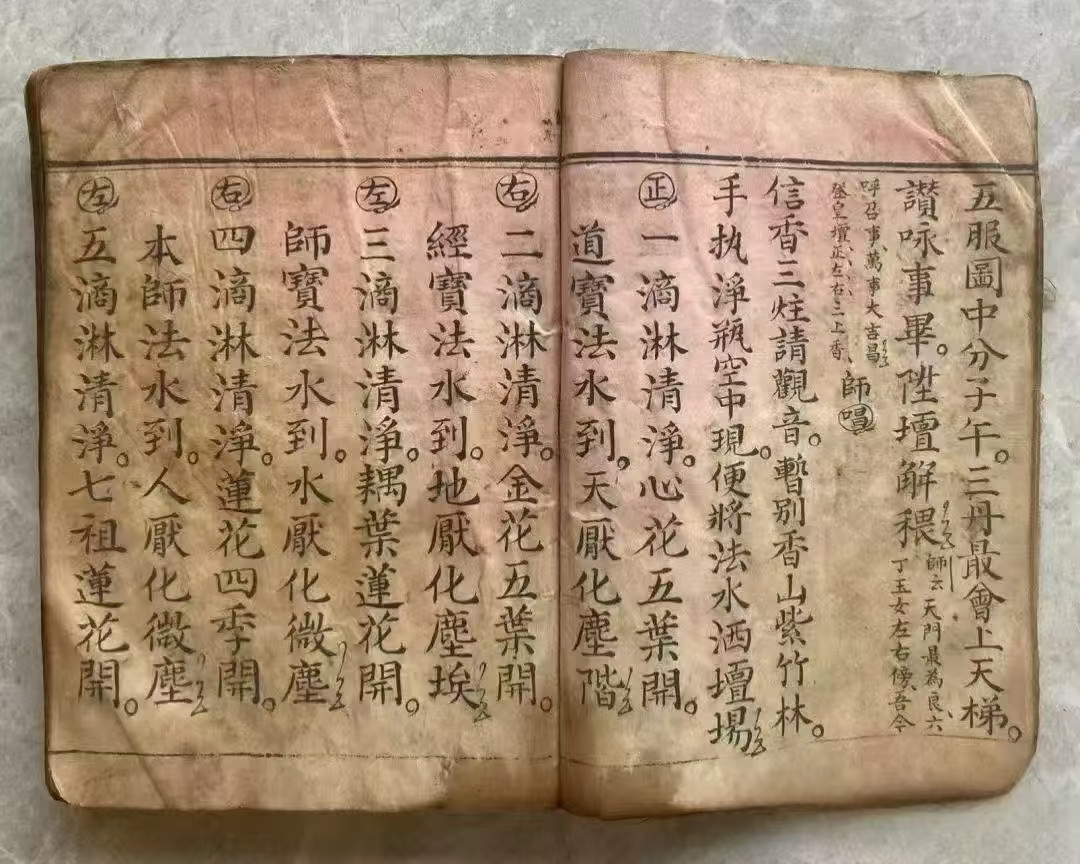 五服圖中分子午。三丹最會上天梯。
讚咏事畢。陞壇解穢
師云天門最為良六
丁玉女左右傍、吾今
呼召事、萬事大吉昌
登皇壇正、左、右、三上香、
師唱
信香三炷請觀音。暫別香山紫竹林。
手执淨瓶空中現。便將法水洒壇場
正一滴淋清淨。心花五葉開。
道寶法水到。天厭化塵階
右二滴淋清淨。金花五葉開。
經寶法水到。地厭化塵埃
左三滴淋清淨。耦葉蓮花開。
師寶法水到。水厭化微塵
右四滴淋清淨。蓮花四季開。
本師法水到。人厭化微塵
左五滴淋清淨。七祖蓮花開。